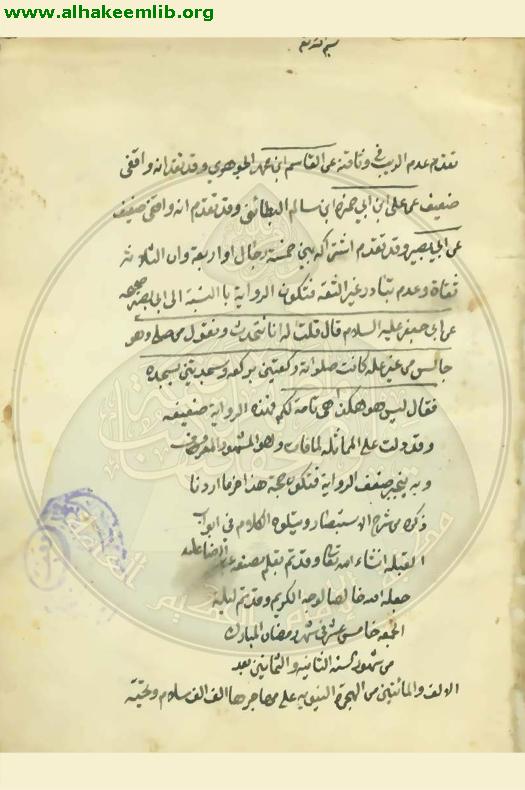 www.alhakeemlib.org
تقدم عدم الريب في وثاقته عن القاسم ابن محمد الجوهري وقد تقدم انه واقفي
ضعيف عن علي ابن ابي حمزه ابن سالم البطائني وقد تقدم انه واقفي ضعيف
عن ابي بصير وقد تقدم اشتراكه بين خمسة رجال او اربعة وان الثلاثة
ثقاة وعدم تبادر غير الثقه فتكون الرواية بالنسبة الى ابي بصير صحيحه
عن ابي جعفر عليه السلام قال قلت له انا نتحدث ونقول من صلى وهو
جالس من غير عله كانت صلوته ركعتين بركعه وسجدتين بسجده
فقال ليس هو هكذا هي تامة لكم فهذه الرواية ضعيفه
وقد دلت على المماثله لما فات وهو المشهور المعروف
وبه ينجبر ضعف الرواية فتكون حجه هذا اخر ما اردنا
ذكره من شرح الاستبصار ويتلوه الكلام في ابواب
القبله انشاء الله تعالى وقد تم بقلم مصنفه
جعله الله خالصا لوجه الكريم وقد تم ليلة
الجمعه خامس عشر في شهر رمضان المبارك
من شهور سنه الثانيه والثمانين بعد
الالف والمائتين من الهجرة النبويه على مهاجرها الف الف سلام وتحيّة